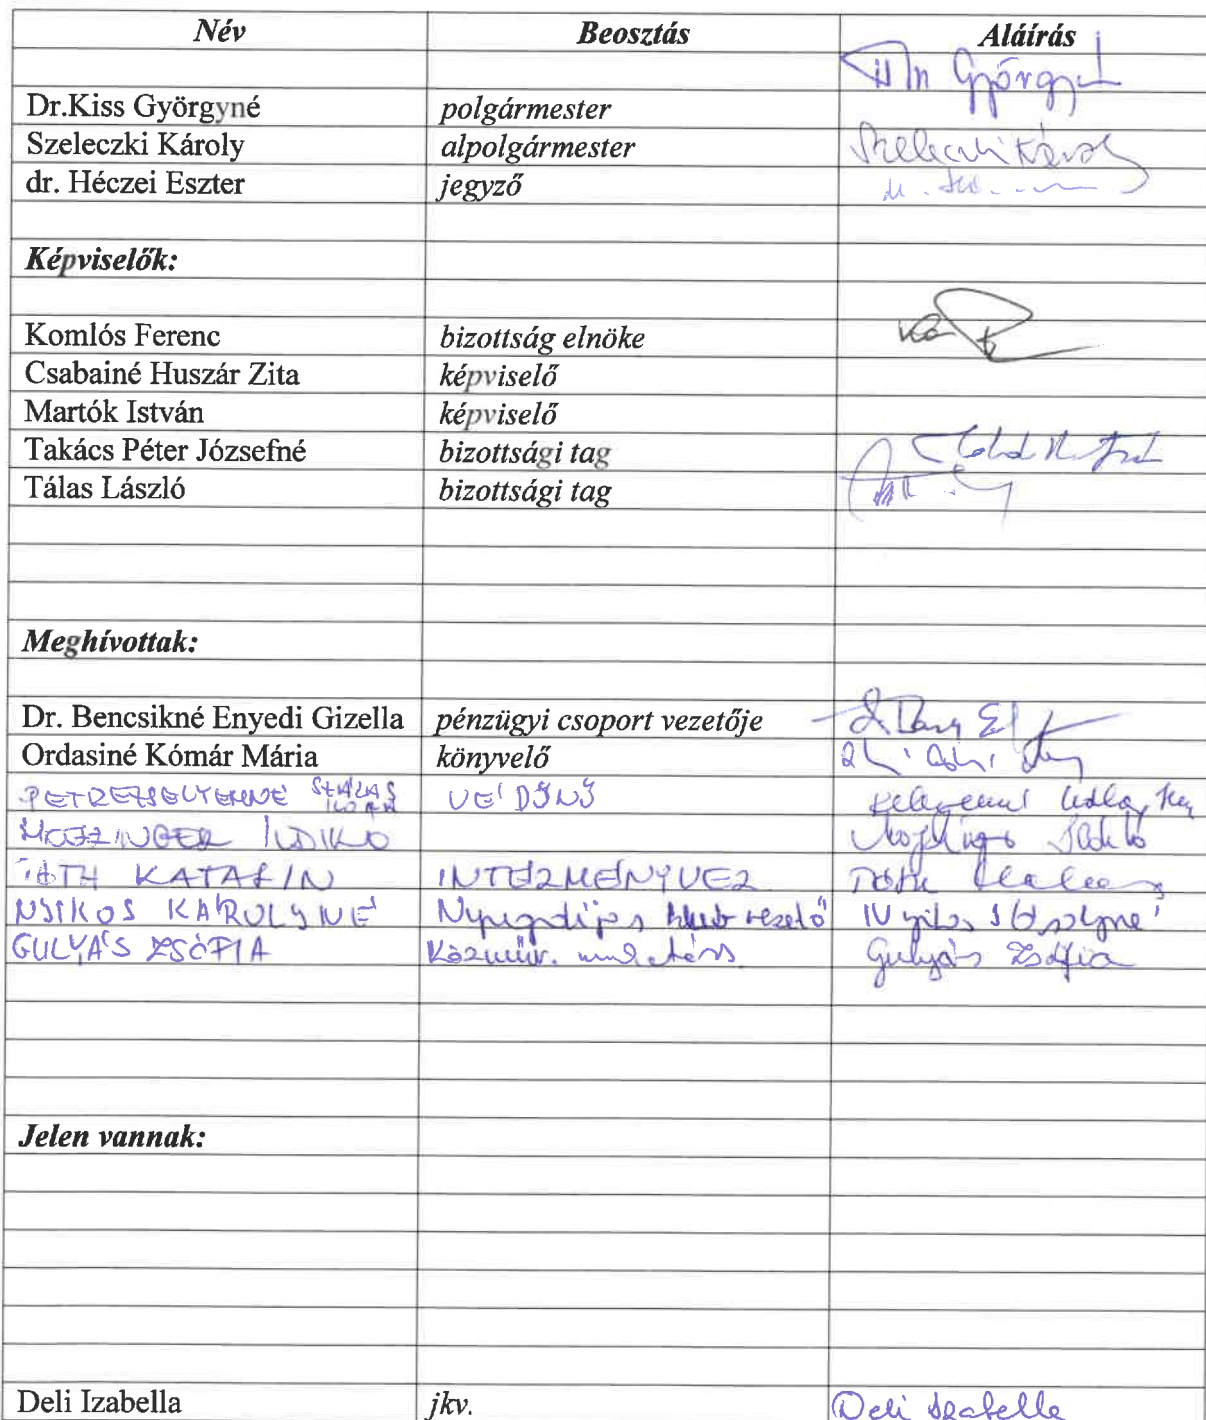 Név Beosztás Aláírás
Györgyné
Dr.Kiss Györgyné polgármester
Szeleczki Károly alpolgármester Szeleczki Károly
dr. Héczei Eszter jegyző
Képviselők:
Komlós Ferenc bizottság elnöke
Csabainé Huszár Zita képviselő
Martók István képviselő
Takács Péter Józsefné bizottsági tag
Tálas László bizottsági tag
Meghívottak:
Dr. Bencsikné Enyedi Gizella pénzügyi csoport vezetője
Ordasiné Kómár Mária könyvelő
VÉDŐNŐ
MOZZINGER ILDIKO
TÓTH KATALIN INTÉZMÉNYVEZ Tóth
NYIKOS KÁROLYNÉ Nyugdíjas klub vezető Nyikos Károlyné
GULYÁS ZSÓFIA Közműv. munkatárs Gulyás Zsófia
Jelen vannak:
Deli Izabella jkv. Deli Izabella